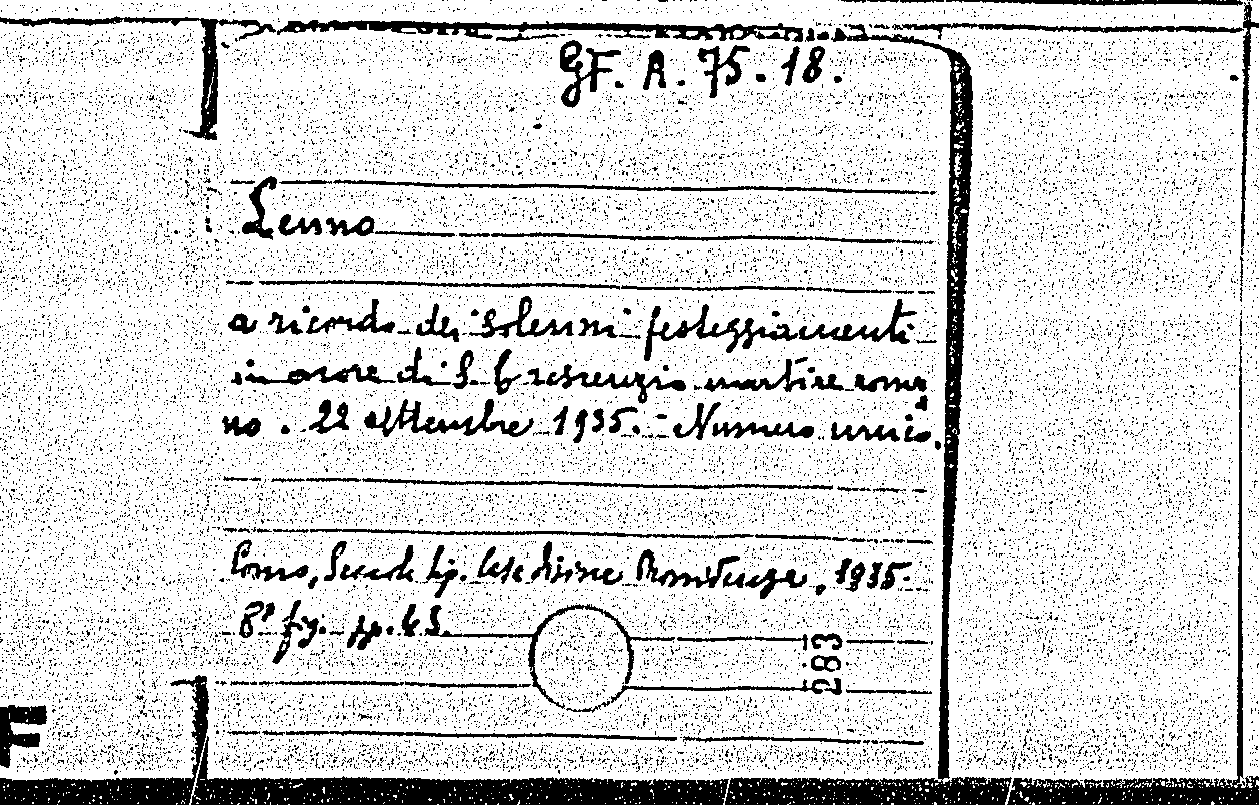 GF. A. 75. 18.
Lenno
a ricordo dei solenni festeggiamenti
in onore di S. Crescenzio martire roma
no. 22 settembre 1935. - Numero unico.
Como, Scuola tip. Casa divina Provvidenza, 1935.
8° fig. pp.
283
F